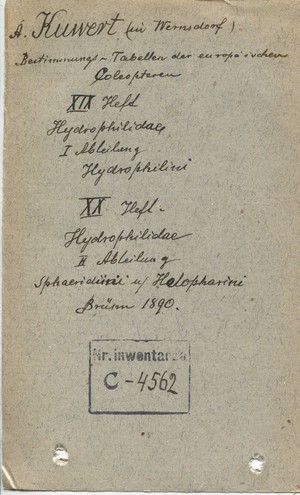 A. Kuwert (in Wernsdorf).
Bestimmungs-Tabellen der europäischen
Coleopteren
XIX Heft
Hydrophilidae
I Abteilung
Hydrophilini
XX Heft.
Hydrophilidae
II Abteilung
Sphaeridiini u/ Helopharini
Brünn 1890.
Nr. inwentarza
C-4562